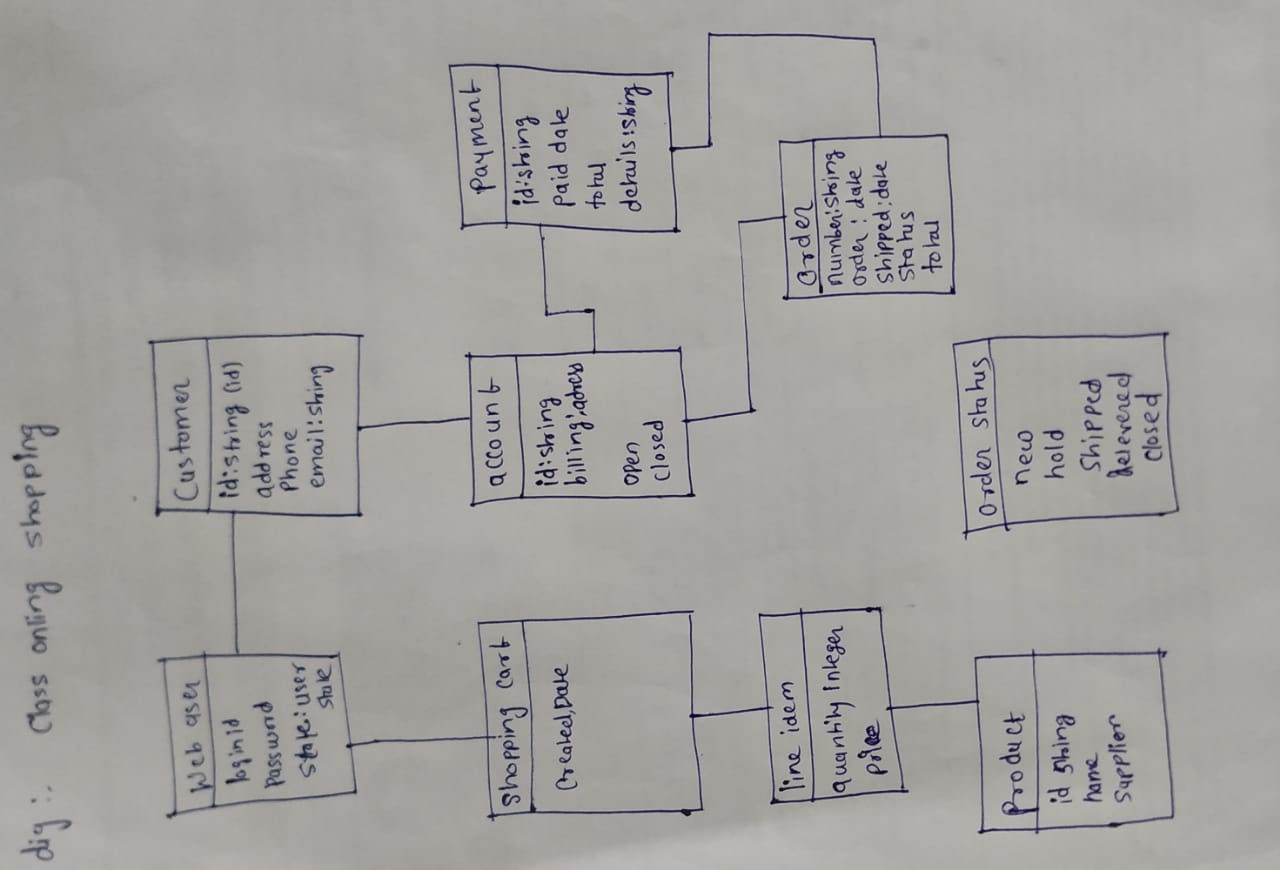 dig :. Class onling shopping
Web user
login id
Password
State: user
State
Customer
id:string (id)
address
Phone
email:string
Shopping cart
Created, Date
account
id:string
billing:adress
open
closed
Payment
id:string
paid date
total
details:string
line idem
quantity integer
price
order
number:string
order : date
Shipped:date
Status
total
Product
id string
name
Supplier
order status
new
hold
Shipped
delevered
closed